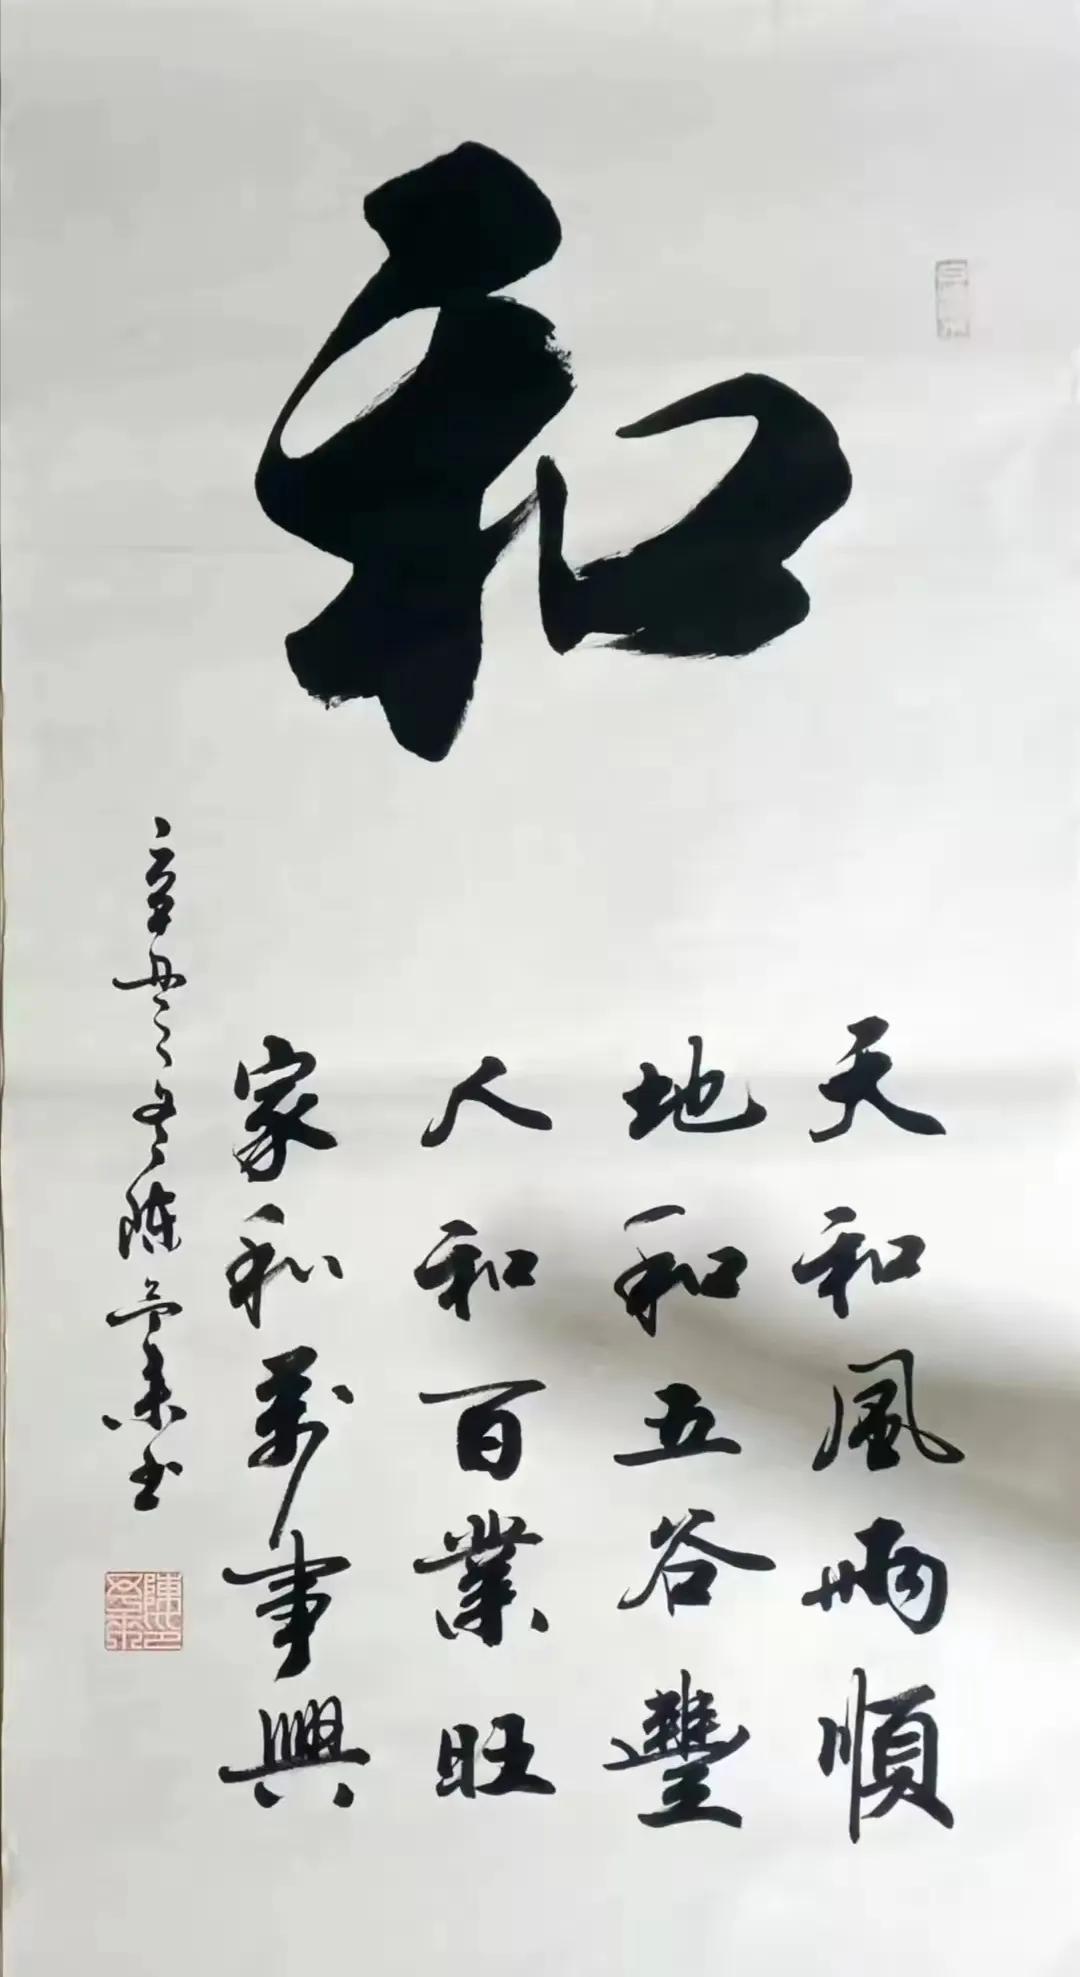 和
天和風雨順
地和五谷豐
人和百業旺
家和萬事興
辛丑之冬陈
书